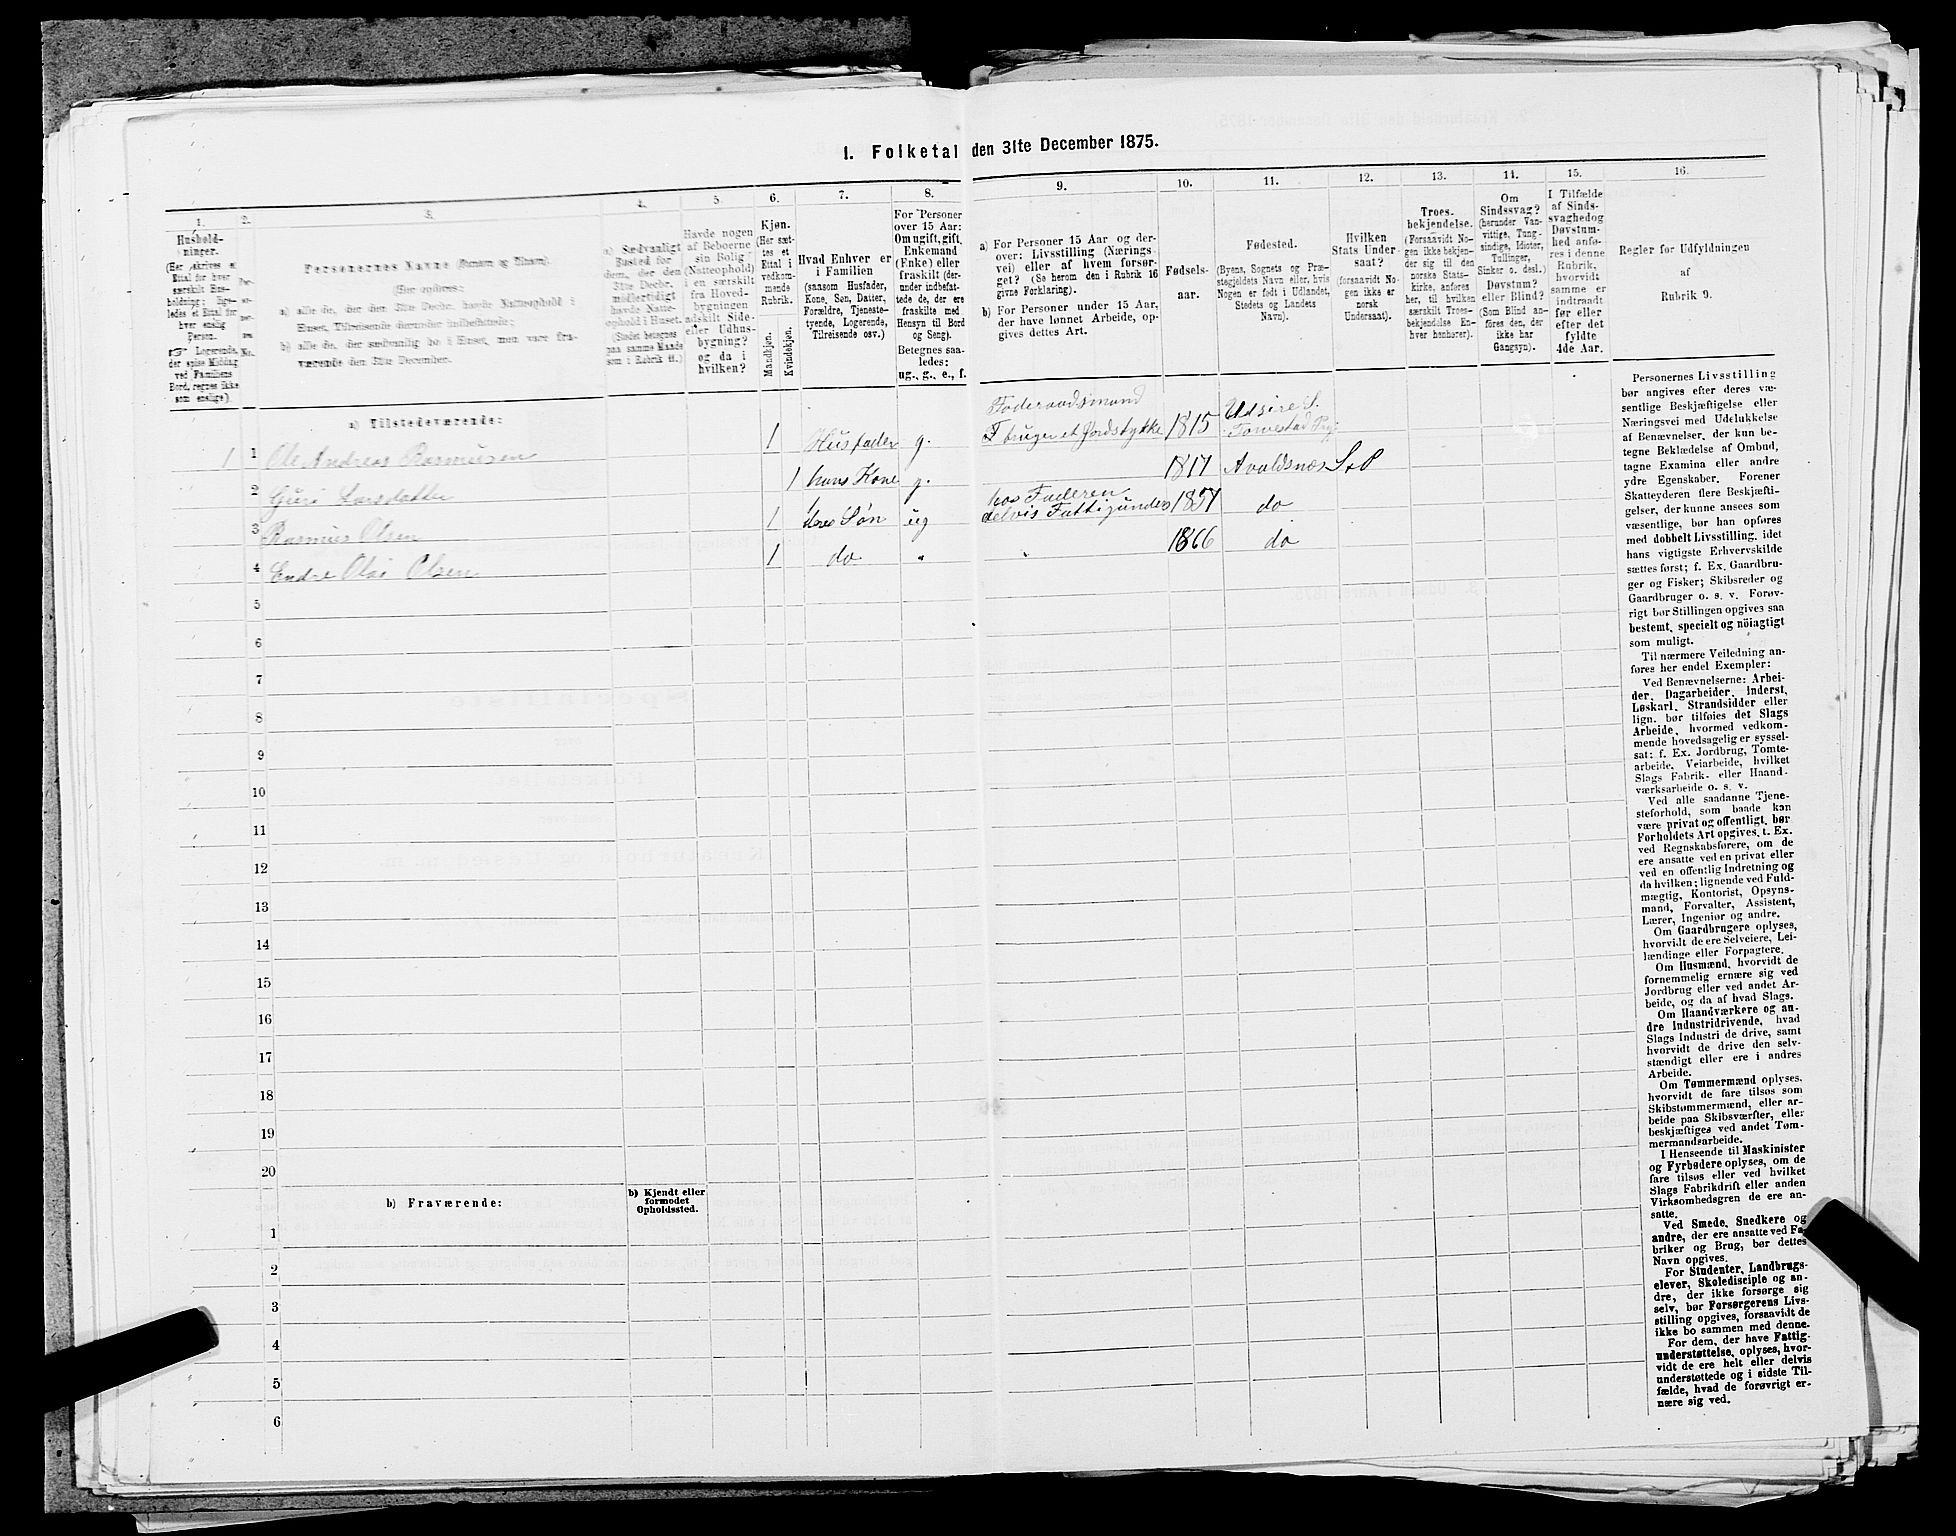 1. Folketal den 31te December 1875.
1. 2. 3. 4. 5. 6. 7. 8. 9. 10. 11. 12. 13. 14. 15. 16.
Hushold-
ninger.
(Her skrives et
Ettal for hver
særskilt Hus-
holdning; lige-
ledes et Ettal for
hver enslig
Person.
☞ Logerende,
der spise Middag
ved Familiens
Bord, regnes ikke
som enslige).
Personernes Navne (Fornavn og Tilnavn).
(Her opføres:
a) alle de, der den 31te Decbr. havde Natteophold i
Huset, Tilreisende derunder indbefattede;
b) alle de, der sædvanlig bo i Huset, men vare fra-
værende den 31te December.
a) Sædvanligt
Bosted for
dem, der den
31te Decbr.
midlertidigt
havde Natte-
ophold i Huset.
(Stedet betegnes
paa samme Maade
som i Rubrik 11.)
Havde nogen
af Beboerne
sin Bolig
(Natteophold)
i en særskilt
fra Hoved-
bygningen
adskilt Side-
eller Udhus-
bygning?
og da i
hvilken?
Kjøn.
(Her sæt-
tes et
Ettal i
vedkom-
mende
Rubrik.
Mandkjøn.
Kvindekjøn.
Hvad Enhver er
i Familien
(saasom Husfader,
Kone, Søn, Datter,
Forældre, Tjeneste-
tyende, Logerende,
Tilreisende osv.)
For Personer
over 15 Aar:
Om ugift, gift,
Enkemand
(Enke) eller
fraskilt (der-
under indbefat-
tede de, der ere
fraskilte med
Hensyn til Bord
og Seng).
Betegnes saa-
ledes:
ug., g., e., f.
a) For Personer 15 Aar og der-
over: Livsstilling (Nærings-
vei) eller af hvem forsør-
get? (Se herom den i Rubrik 16
givne Forklaring).
b) For Personer under 15 Aar,
der have lønnet Arbeide, op-
gives dettes Art.
Fødsels-
aar.
Fødested.
(Byens, Sognets og Præ-
stegjeldets Navn eller, hvis
Nogen er født i Udlandet,
Stedets og Landets
Navn).
Hvilken
Stats Under-
saat?
(forsaavidt No-
gen ikke er
norsk
Undersaat).
Troes-
bekjendelse.
(Forsaavidt No-
gen ikke bekjen-
der sig til den
norske Stats-
kirke, anføres
her, til hvilken
særskilt Troes-
bekjendelse En-
hver henhører).
Om
Sindssvag?
(herunder Van-
vittige, Tung-
sindige, Idioter,
Tullinger,
Sinker o. desl.)
Døvstum?
eller Blind?
(Som Blind an-
føres den, der
ikke har
Gangsyn).
I Tilfælde
af Sinds-
svaghedog
Døvstum-
hed anfø-
res i denne
Rubrik,
hvorvidt
samme er
indtraadt
før eller
efter det
fyldte
4de Aar.
Regler for Udfyldningen
af
Rubrik 9.
a) Tilstedeværende:
1 1 Ole Andreas Rasmusen 1 Husfader g. Føderaadsmand
bruger et Jordstykke 1815 Udsire S.
Torvestad
2 Guri Larsdatter 1 hans Kone g. 1817 Avaldsnæs S & P
3 Rasmus Olsen 1 deres Søn ug hos Faderen
delvis Fattigunders 1857 do
4 Endre Olai Olsen 1 do " " 1866 do
5
6
7
8
9
10
11
12
13
14
15
16
17
18
19
20
b) Fraværende:
b) Kjendt eller
formodet
Opholdssted.
1
2
3
4
5
6
Personernes Livsstilling
bør angives efter deres væ-
sentlige Beskjæftigelse eller
Næringsvei med Udelukkelse
af Benævnelser, der kun be-
tegne Beklædelse af Ombud,
tagne Examina eller andre
ydre Egenskaber. Forener
Skatteyderen flere Beskjæfti-
gelser, der kunne ansees som
væsentlige, bør han opføres
med dobbelt Livsstilling, idet
hans vigtigste Erhvervskilde
sættes først; f. Ex. Gaardbru-
ger og Fisker; Skibsreder og
Gaardbruger o. s. v. Forøv-
rigt bør Stillingen opgives saa
bestemt, specielt og nöiagtigt
som muligt.
Til nærmere Veiledning an-
føres her endel Exempler:
Ved Benævnelserne: Arbei-
der, Dagarbeider, Inderst,
Løskarl, Strandsidder eller
lign. bør tilføies det Slags
Arbeide, hvormed vedkom-
mende hovedsagelig er syssel-
sat; f. Ex. Jordbrug, Tomte-
arbeide, Veiarbeide, hvilket
Slags Fabrik- eller Haand-
værksarbeide o. s. v.
Ved alle saadanne Tjene-
steforhold, som baade kan
være privat og offentligt, bør
Forholdets Art opgives, t. Ex.
ved Regnskabsførere, om de
ere ansatte ved en privat eller
ved en offentlig Indretning og
da hvilken; lignende ved Fuld-
mægtig, Kontorist, Opsyns-
mand, Forvalter, Assistent,
Lærer, Ingeniør og andre.
Om Gaardbrugere oplyses,
hvorvidt de ere Selveiere, Lei-
lændinge eller Forpagtere.
Om Husmænd, hvorvidt de
fornemmelig ernære sig ved
Jordbrug eller ved andet Ar-
beide, og da af hvad Slags.
Om Haandværkere og an-
dre Industridrivende, hvad
Slags Industri de drive, samt
hvorvidt de drive den selv-
stændigt eller ere i andres
Arbeide.
Om Tømmermænd oplyses,
hvorvidt de fare tilsøs som
Skibstømmermænd, eller ar-
beide paa Skibsværfter, eller
beskjæftiges ved andet Tøm-
mermandsarbeide.
I Henseende til Maskinister
og Fyrbødere oplyses, om de
fare tilsøs eller ved hvilket
Slags Fabrikdrift eller anden
Virksomhedsgren de ere an-
satte.
Ved Smede, Snedkere og
andre, der ere ansatte ved Fa-
briker og Brug, bør dettes
Navn opgives.
For Studenter, Landbrugs-
elever, Skoledisciple og an-
dre, der ikke forsørge sig
selv, bør Forsørgerens Livs-
stilling opgives, forsaavidt de
ikke bo sammen med denne.
For dem, der have Fattig-
understøttelse, oplyses, hvor-
vidt de ere helt eller delvis
understøttede og i sidste Til-
fælde, hvad de forøvrigt er-
nære sig ved.